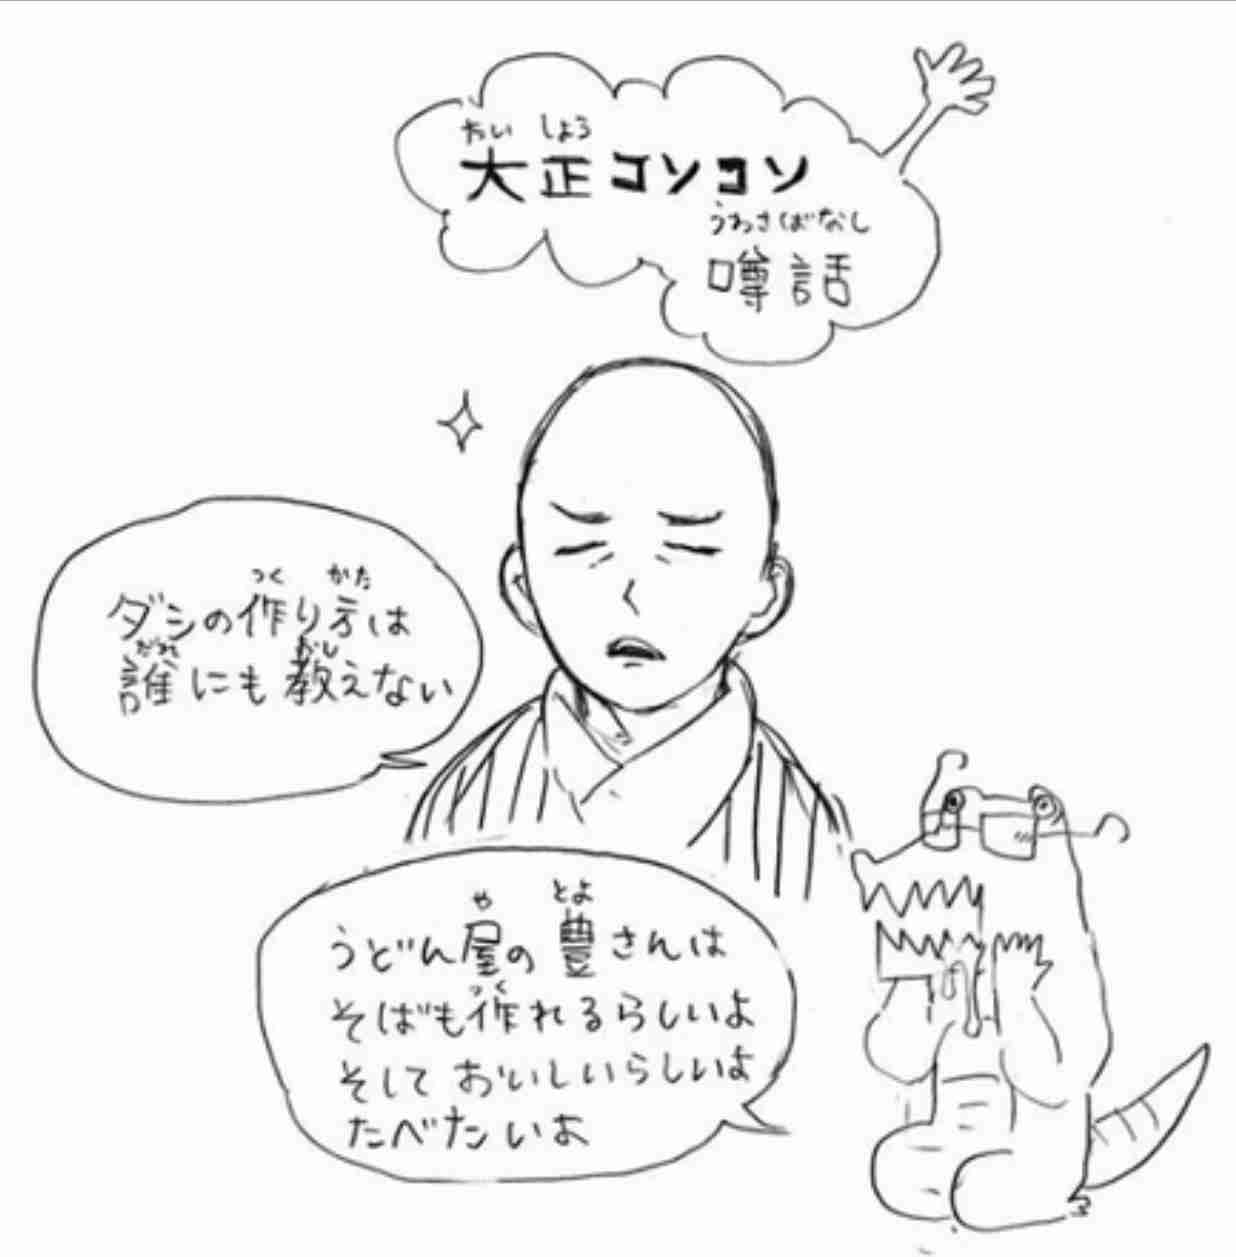 たいしょう
大正コソコソ
うわさばなし
噂話
つくかた
ダシの作り方は
だれおし
誰にも教えない
やとよ
うどん屋の豊さんは
つく
そばも作れるらしいよ
そして おいしいらしいよ
たべたいよ